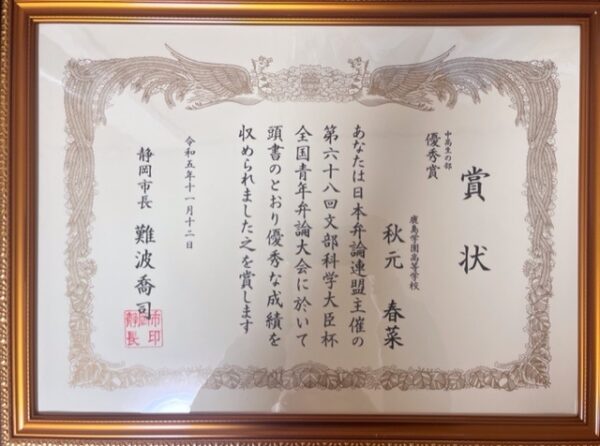 賞状
中高生の部
優秀賞
鹿島学園高等学校
秋元 春菜
あなたは日本弁論連盟主催の
第六十八回文部科学大臣杯
全国青年弁論大会に於いて
頭書のとおり優秀な成績を
収められました之を賞します
令和五年十一月十二日
静岡市長 難波喬司
静岡市長印